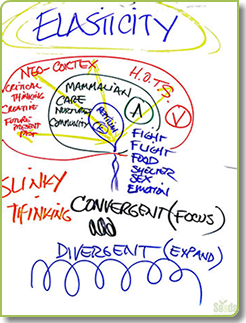 ELASTICITY
NEO-CORTEX
H.O.T.S
CRITICAL
THINKING
CREATIVE
FUTURE
PRESENT
PAST
MAMMALIAN
CARE
NURTURE
COMMUNITY
REPTILIAN
R
A
V
FIGHT
FLIGHT
FOOD
SHELTER
SEX
EMOTION
SLINKY
THINKING
CONVERGENT (FOCUS)
DIVERGENT (EXPAND)